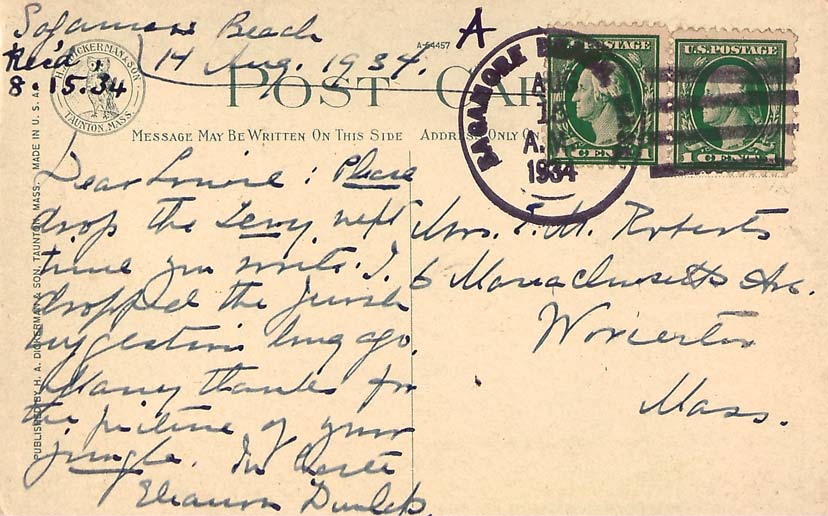 Sagamore Beach
14 Aug. 1934.
Rec'd
8.15.34
A
A-64457
POST CARD
H. A. DICKERMAN & SON.
TAUNTON, MASS.
MESSAGE MAY BE WRITTEN ON THIS SIDE
ADDRESS ONLY ON
SAGAMORE BEACH
AUG
15
A.M.
1934
U.S. POSTAGE
1 CENT 1
U.S. POSTAGE
1 CENT 1
PUBLISHED BY H. A. DICKERMAN & SON, TAUNTON, MASS. MADE IN U. S. A.
Dear Louise: Please
drop the Levy next
time you write. I
dropped the Jewish
suggestion long ago.
Many thanks for
the picture of your
jungle. In haste
Eleanor Dunlap.
Mrs. T. M. Roberts
6 Massachusetts Ave.
Worcester
Mass.